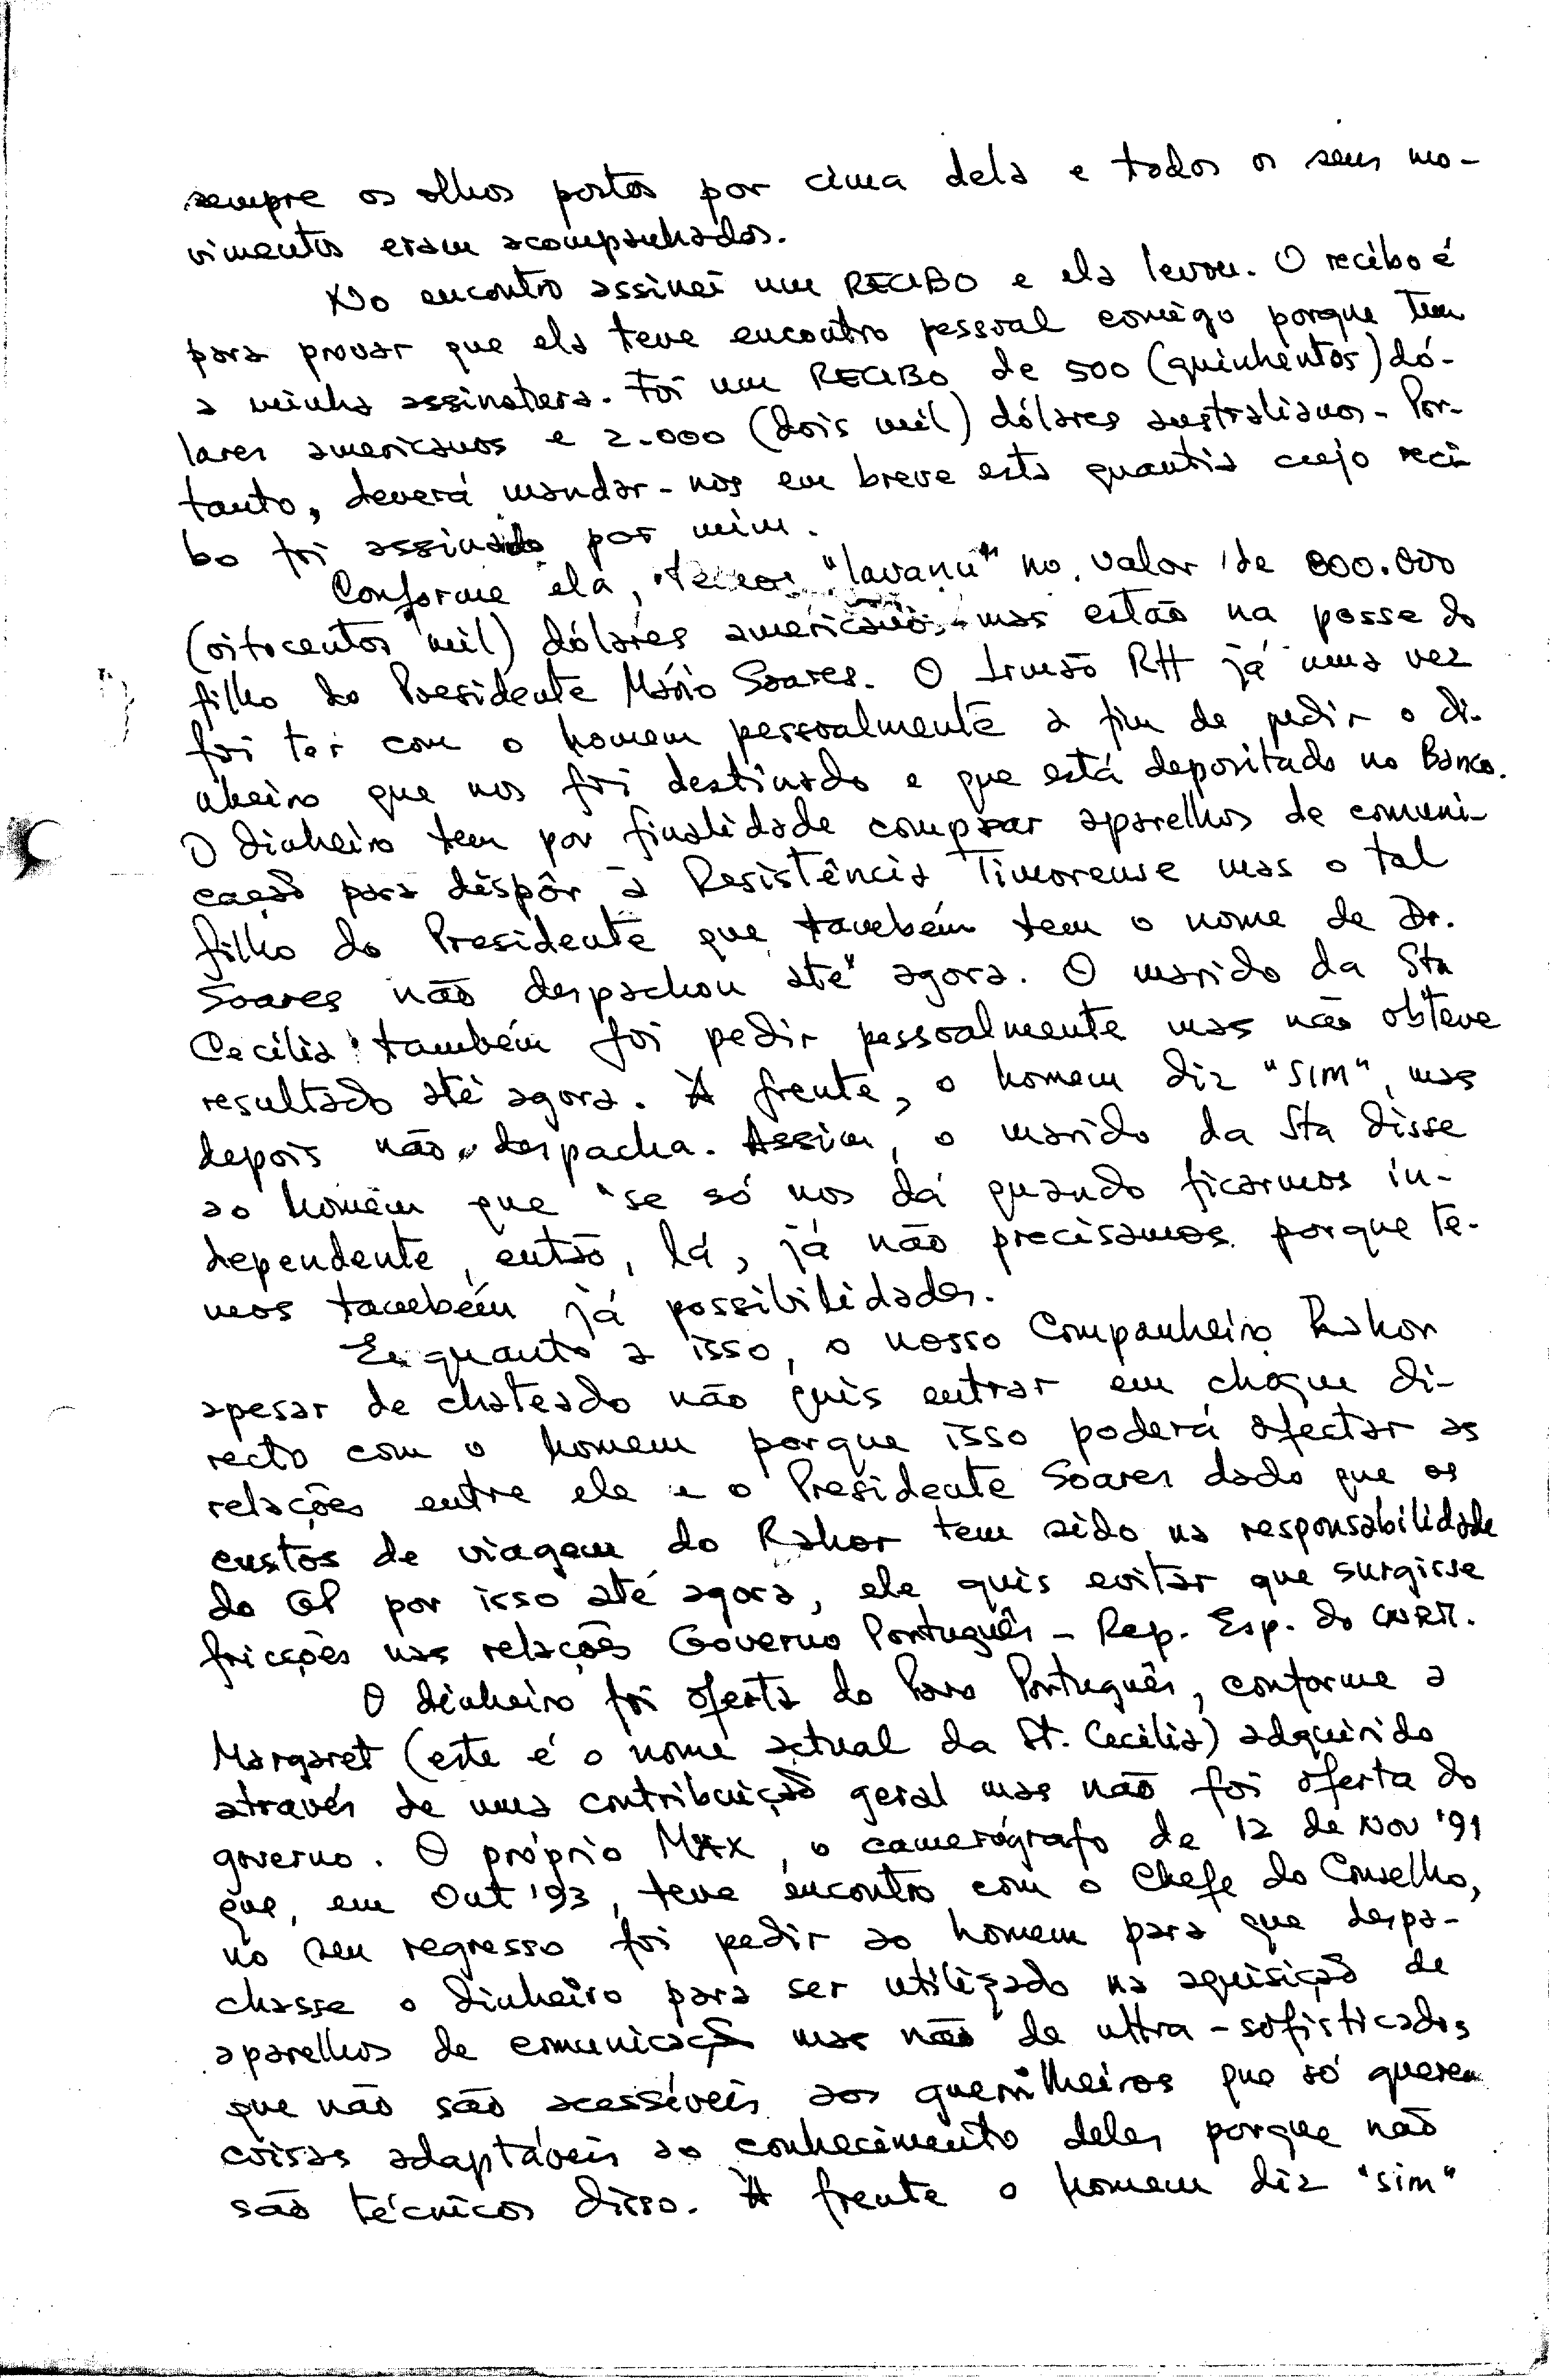 sempre os olhos postos por cima dela e todos os seus mo-
vimentos eram acompanhados.
No encontro assinei um RECIBO e ela levou. O recibo é
para provar que ela teve encontro pessoal comigo porque tem
a minha assinatura. Foi um RECIBO de 500 (quinhentos) dó-
lares americanos e 2.000 (dois mil) dólares australianos. Por-
tanto, deverá mandar-nos em breve esta quantia cujo reci
bo foi assinado por mim.
Conforme ela, temos "lavanu" no valor de 800.000
(oitocentos mil) dólares americanos, mas estão na posse do
filho do Presidente Mário Soares. O Irmão RH já uma vez
foi ter com o homem pessoalmente a fim de pedir o di-
nheiro que nos foi destinado e que está depositado no Banco.
O dinheiro tem por finalidade comprar aparelhos de comuni-
cação para dispôr à Resistência Timorense mas o tal
filho do Presidente que também tem o nome de Dr.
Soares não despachou até agora. O marido da Sta
Cecília também foi pedir pessoalmente mas não obteve
resultado até agora. À frente, o homem diz "SIM", mas
depois não despacha. Assim, o marido da Sta disse
ao homem que "se só nos dá quando ficarmos in-
dependente, então, lá, já não precisamos porque te-
mos também já possibilidades.
Enquanto a isso, o nosso Companheiro Rahor
apesar de chateado não quis entrar em choque di-
recto com o homem porque isso poderá afectar as
relações entre ele e o Presidente Soares dado que os
custos de viagem do Rahor tem sido na responsabilidade
do GP por isso até agora, ele quis evitar que surgisse
fricções nas relações Governo Português - Rep. Esp. do CNRM.
O dinheiro foi oferta do Povo Português, conforme a
Margaret (este é o nome actual da St. Cecília) adquirido
através de uma contribuição geral mas não foi oferta do
governo. O próprio MAX, o camerógrafo de 12 de Nov '91
que, em Out '93, teve encontro com o Chefe do Conselho,
no seu regresso foi pedir ao homem para que despa-
chasse o dinheiro para ser utilizado na aquisição de
aparelhos de comunicação mas não de ultra-sofisticados
que não são acessíveis aos guerrilheiros que só querem
coisas adaptáveis ao conhecimento deles porque não
são técnicos disso. À frente o homem diz "sim"